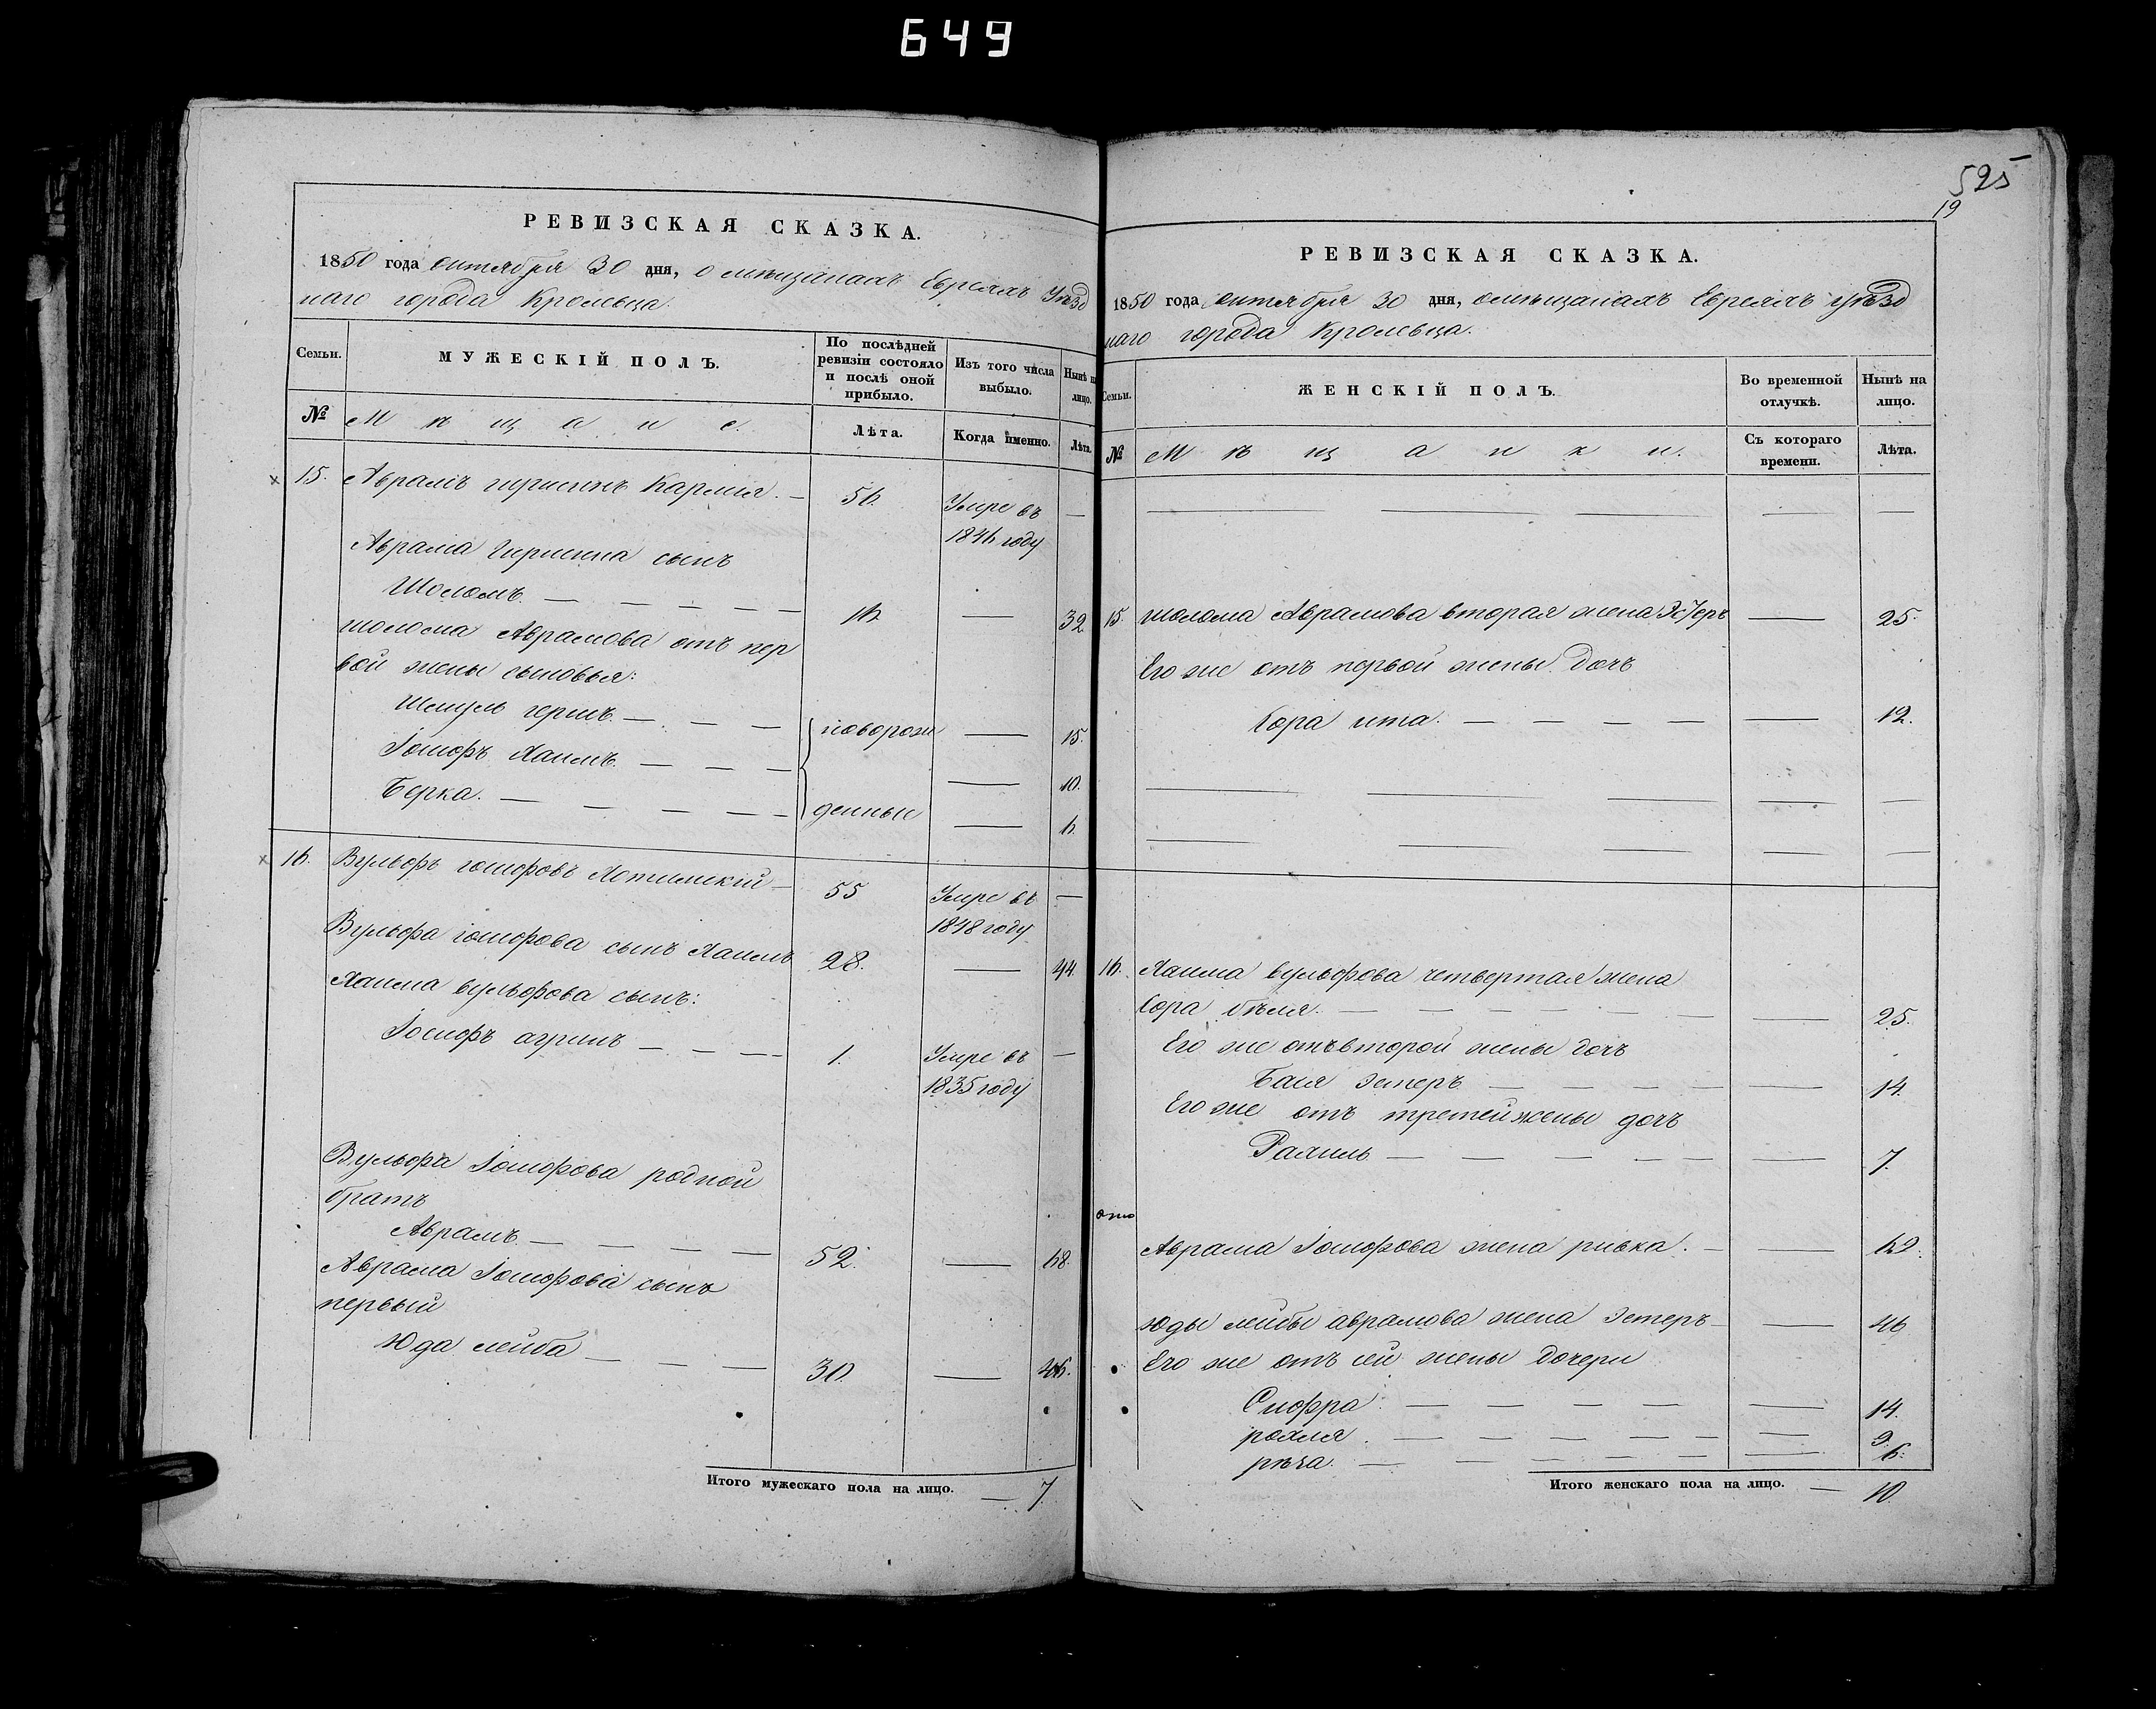 649
РЕВИЗСКАЯ СКАЗКА.
1850 года октября 30 дня, о мѣщанахъ Евреяхъ Уѣзд
наго города Кролевца.
Семьи.
МУЖЕСКІЙ ПОЛЪ.
По послѣдней
ревизіи состояло
и послѣ оной
прибыло.
Изъ того числа
выбыло.
Нынѣ н
лицо.
№
Мѣщане.
Лѣта.
Когда именно.
Лѣта.
15. Аврамъ гиршинъ Кармия. — 56. Умре въ —
1846 году
Аврама Гиршина сынъ
Шоломъ — — — — — 16. — 32
шолома Аврамова отъ пер
вой жены сыновья:
Шмуль гершъ — — — новорож — 15.
Іосифъ Хаимъ. — — — — 10.
Берка. — — — — денные — 6.
16. Вульфъ іосифовъ Хотимскій — 55 Умре въ —
1848 году
Вульфа іосифова сынъ Хаимъ 28. — 44.
Хаима вульфова сынъ:
Іосифъ агринъ — — — 1. Умре въ —
1835 году
Вульфа Іосифова родной
братъ
Аврамъ — — — — 52. — 68.
Аврама Іосифова сынъ
первый
Юда лейба — — — 30. — 46.
Итого мужескаго пола на лицо. — 7.
525
19
РЕВИЗСКАЯ СКАЗКА.
1850 года октября 30 дня, о мѣщанахъ Евреяхъ уѣзд
наго города Кролевца.
Семьи.
ЖЕНСКІЙ ПОЛЪ.
Во временной
отлучкѣ.
Нынѣ на
лицо.
№
Мѣщанки.
Съ котораго
времени.
Лѣта.
15. шолома Аврамова вторая жена Эстеръ — 25.
Его же отъ первой жены дочь
Сора ита. — — — — — 12.
16. Хаима вульфова четвертая жена
Сора бѣля. — — — — — — 25.
Его же отъ второй жены дочь
Бася эстеръ — — — — — 14.
Его же отъ третей жены дочь
Рахиль — — — — — — 7.
Аврама Іосифова жена ривка. — — 69.
Юды лейбы аврамова жена эстеръ — — 46
Его же отъ сей жены дочери
Сифра — — — — — 14.
рохля. — — — — — — 9.
рѣча. — — — — — — 6.
Итого женскаго пола на лицо. — 10.